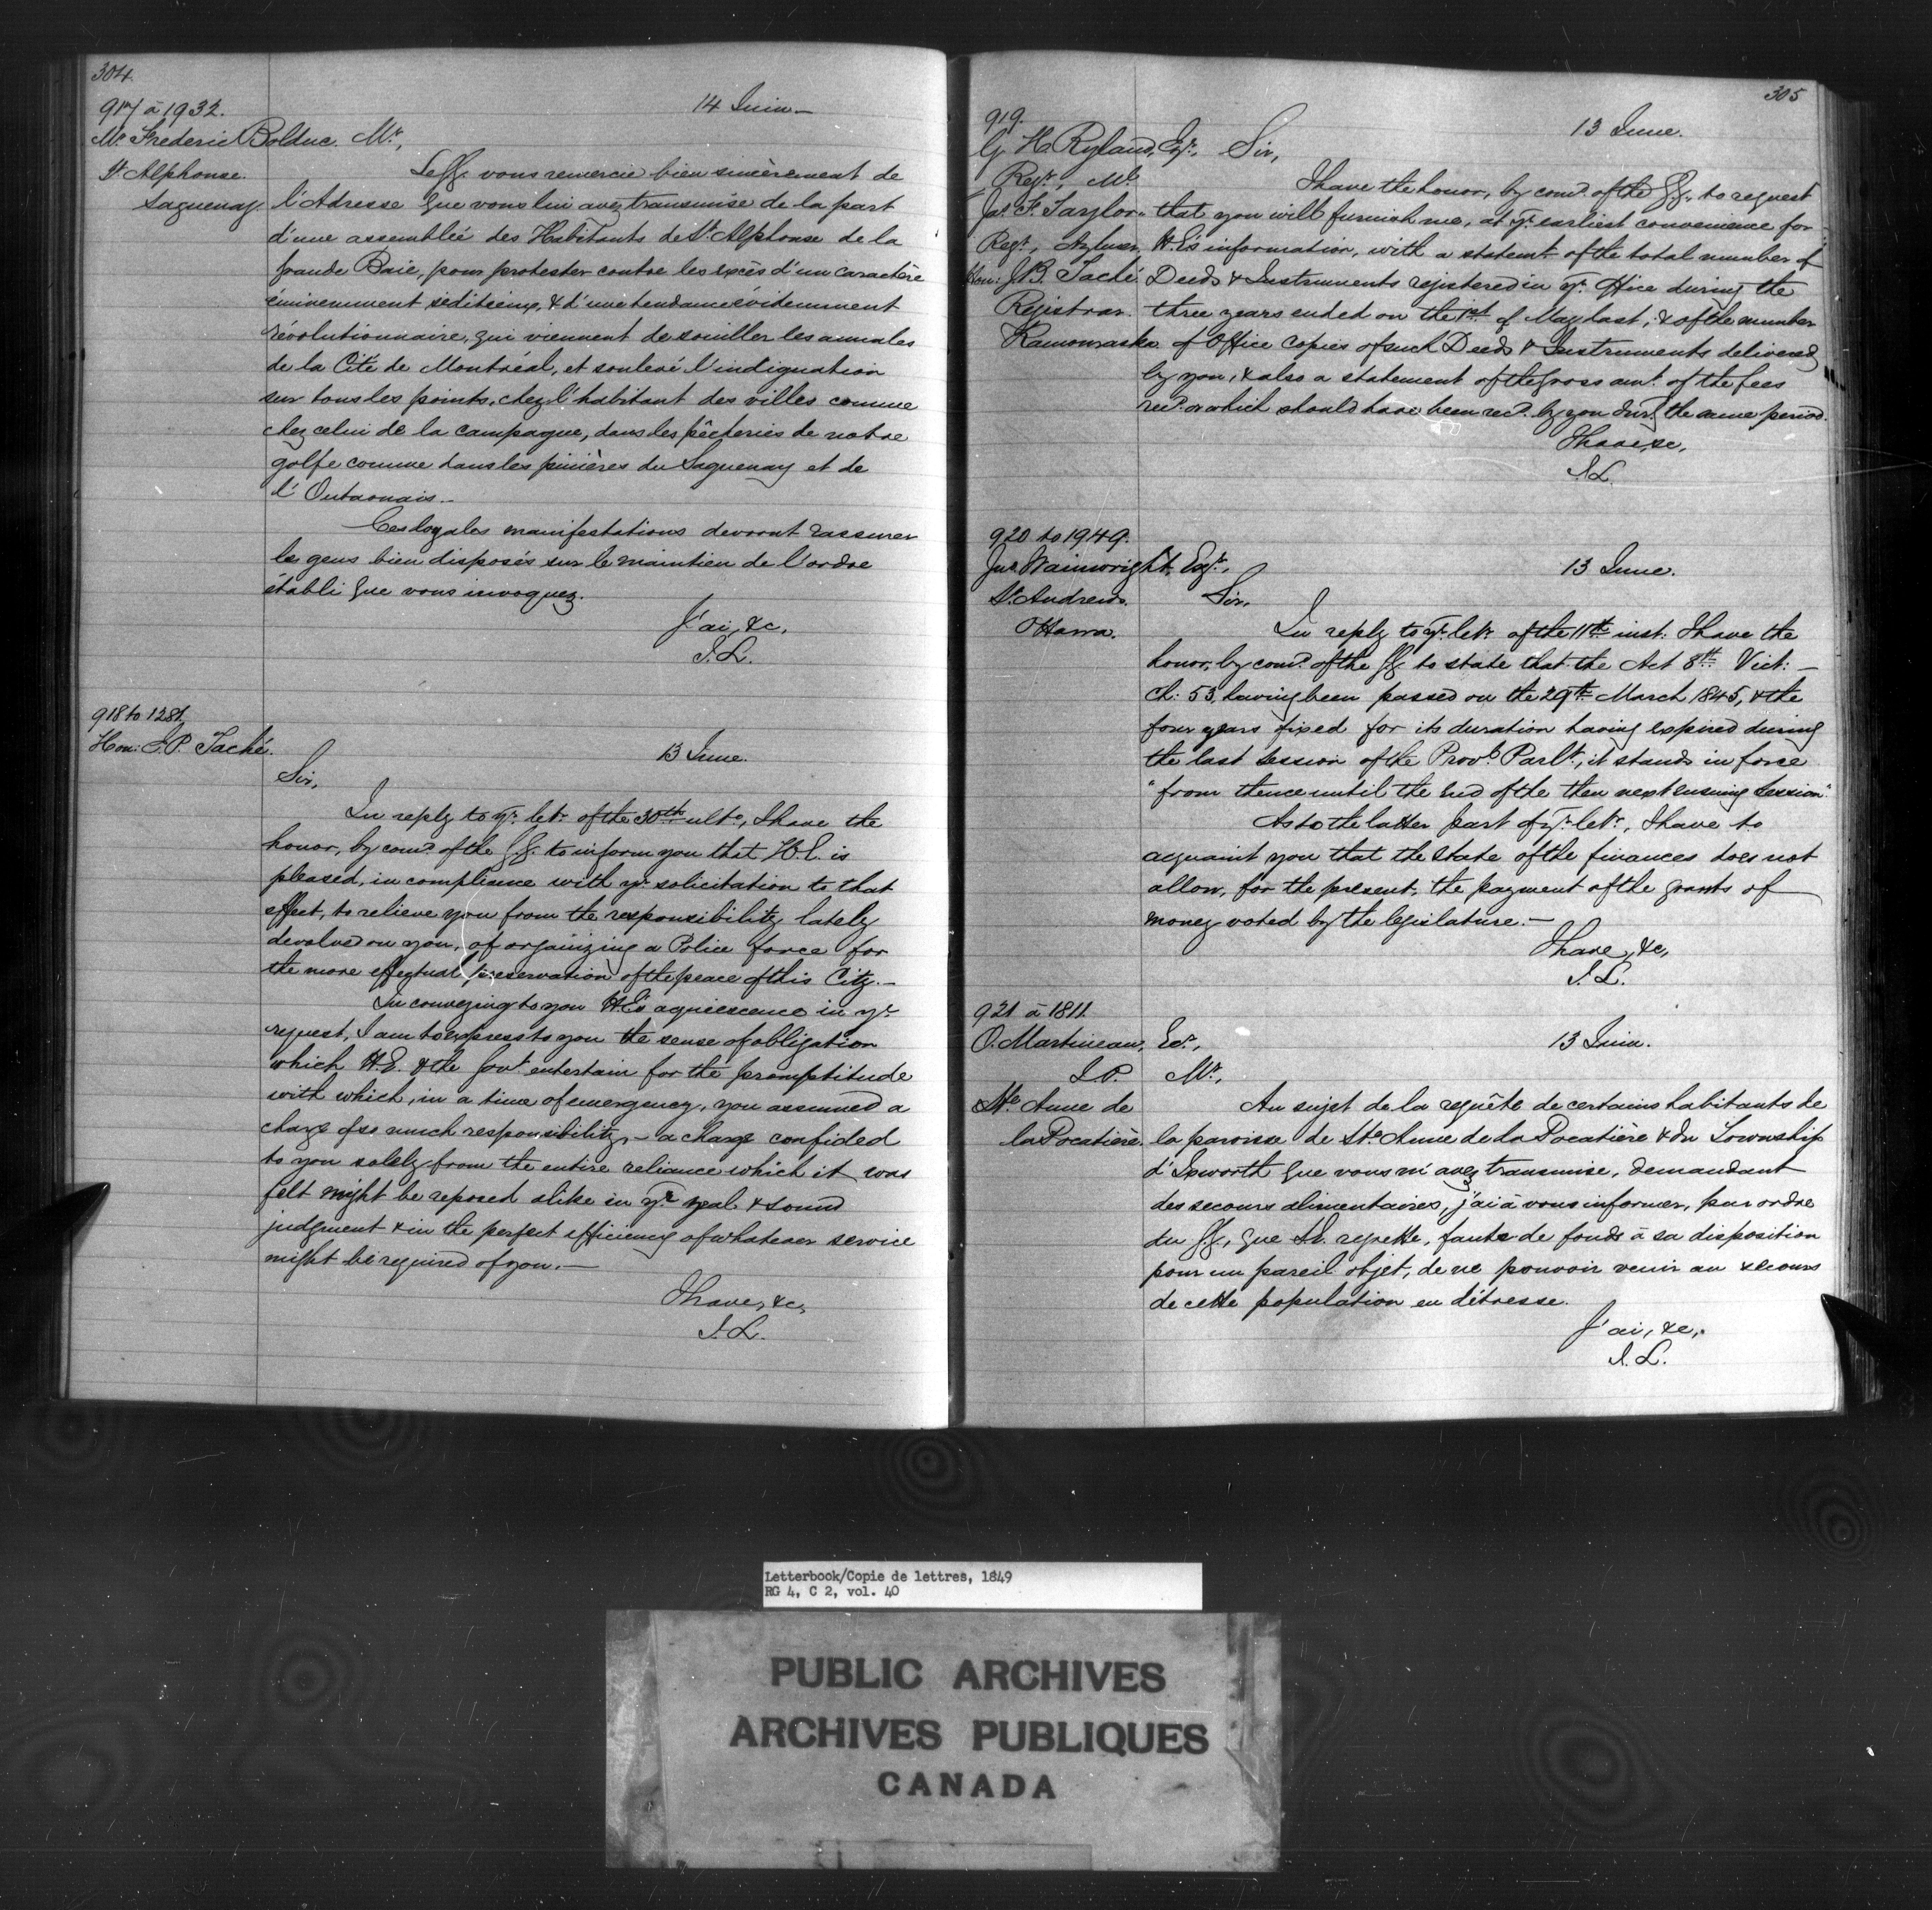 304.
917 à 1932.
14 Juin —
Mr. Frederic Bolduc. Mr.,
St Alphonse.
Saguenay.
Le GG. vous remercie bien sincèrement de
l'Adresse que vous lui avez transmise de la part
d'une assemblée des Habitants de St. Alphonse de la
grande Baie, pour protester contre les excès d'un caractère
éminemment séditieux, & d'une tendance évidemment
révolutionnaire, qui viennent de souiller les annales
de la Cité de Montréal, et soulevé l'indignation
sur tous les points, chez l'habitant des villes comme
chez celui de la campagne, dans les pêcheries de notre
golfe comme dans les pinières du Saguenay et de
l'Outaouais.—
Ces loyales manifestations devront rassurer
les gens bien disposés sur le maintien de l'ordre
établi que vous invoquez.
J'ai, &c,
J.L.
918 to 1281.
Hon: E.P. Taché.
13 June.
Sir,
In reply to yr. letr. of the 30th ulto., I have the
honor, by comd. of the G.G. to inform you that H.E. is
pleased, in compliance with yr. solicitation to that
effect, to relieve you from the responsibility lately
devolved on you, of organizing a Police force for
the more effectual preservation of the peace of this City.—
In conveying to you H.E's aquiescence in yr.
request, I am to express to you the sense of obligation
which H.E. & the Govt. entertain for the promptitude
with which, in a time of emergency, you assumed a
charge of so much responsibility, — a charge confided
to you solely from the entire reliance which it was
felt might be reposed alike in yr. zeal & sound
judgment & in the perfect efficiency of whatever service
might be required of you.—
I have, &c,
J.L.
305
919.
13 June.
G. H. Ryland, Esqr., Sir,
Regr., Ml.
I have the honor, by comd. of the GG., to request
Jas. F. Taylor that you will furnish me, at yr. earliest convenience for
Regr., Aylmer, H.E's information, with a statemt. of the total number of
Hon: J.B. Taché Deeds & Instruments registered in yr. Office during the
Registrar. three years ended on the 1st of May last; & of the number
Kamouraska of Office Copies of such Deeds & Instruments delivered
by you, & also a statement of the gross amt. of the fees
recd. or which should have been recd. by you durg. the same period.
I have, &c,
J.L.
920 to 1949.
Jno. Wainwright, Esqr.,
13 June.
St. Andrews.
Sir,
Ottawa.
In reply to yr. letr. of the 11th inst: I have the
honor, by comd. of the GG to state that the Act 8th Vict: —
Ch: 53, having been passed on the 29th March 1845, & the
four years fixed for its duration having expired during
the last Session of the Provl. Parlt., it stands in force
"from thence until the End of the then next ensuing Session".
As to the latter part of yr. letr., I have to
acquaint you that the State of the finances does not
allow, for the present, the payment of the grants of
money voted by the legislature.—
I have, &c,
J.L.
921 à 1811.
O. Martineau, Ecr.,
13 Juin.
J.P. Mr.,
Ste. Anne de
la Pocatière.
Au sujet de la requête de certains habitants de
la paroisse de Ste. Anne de la Pocatière & du Township
d'Ixworth que vous m'avez transmise, demandant
des secours alimentaires, j'ai à vous informer, par ordre
du GG, que S.E. regrette, faute de fonds à sa disposition
pour un pareil objet, de ne pouvoir venir au secours
de cette population en détresse.
J'ai, &c,.
J.L.
Letterbook/Copie de lettres, 1849
RG 4, C 2, vol. 40
PUBLIC ARCHIVES
ARCHIVES PUBLIQUES
CANADA